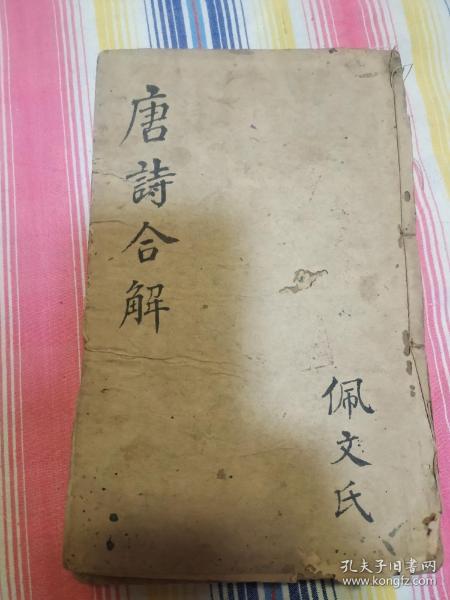 唐詩合解
佩文氏
孔夫子旧书网
www.kongfz.com